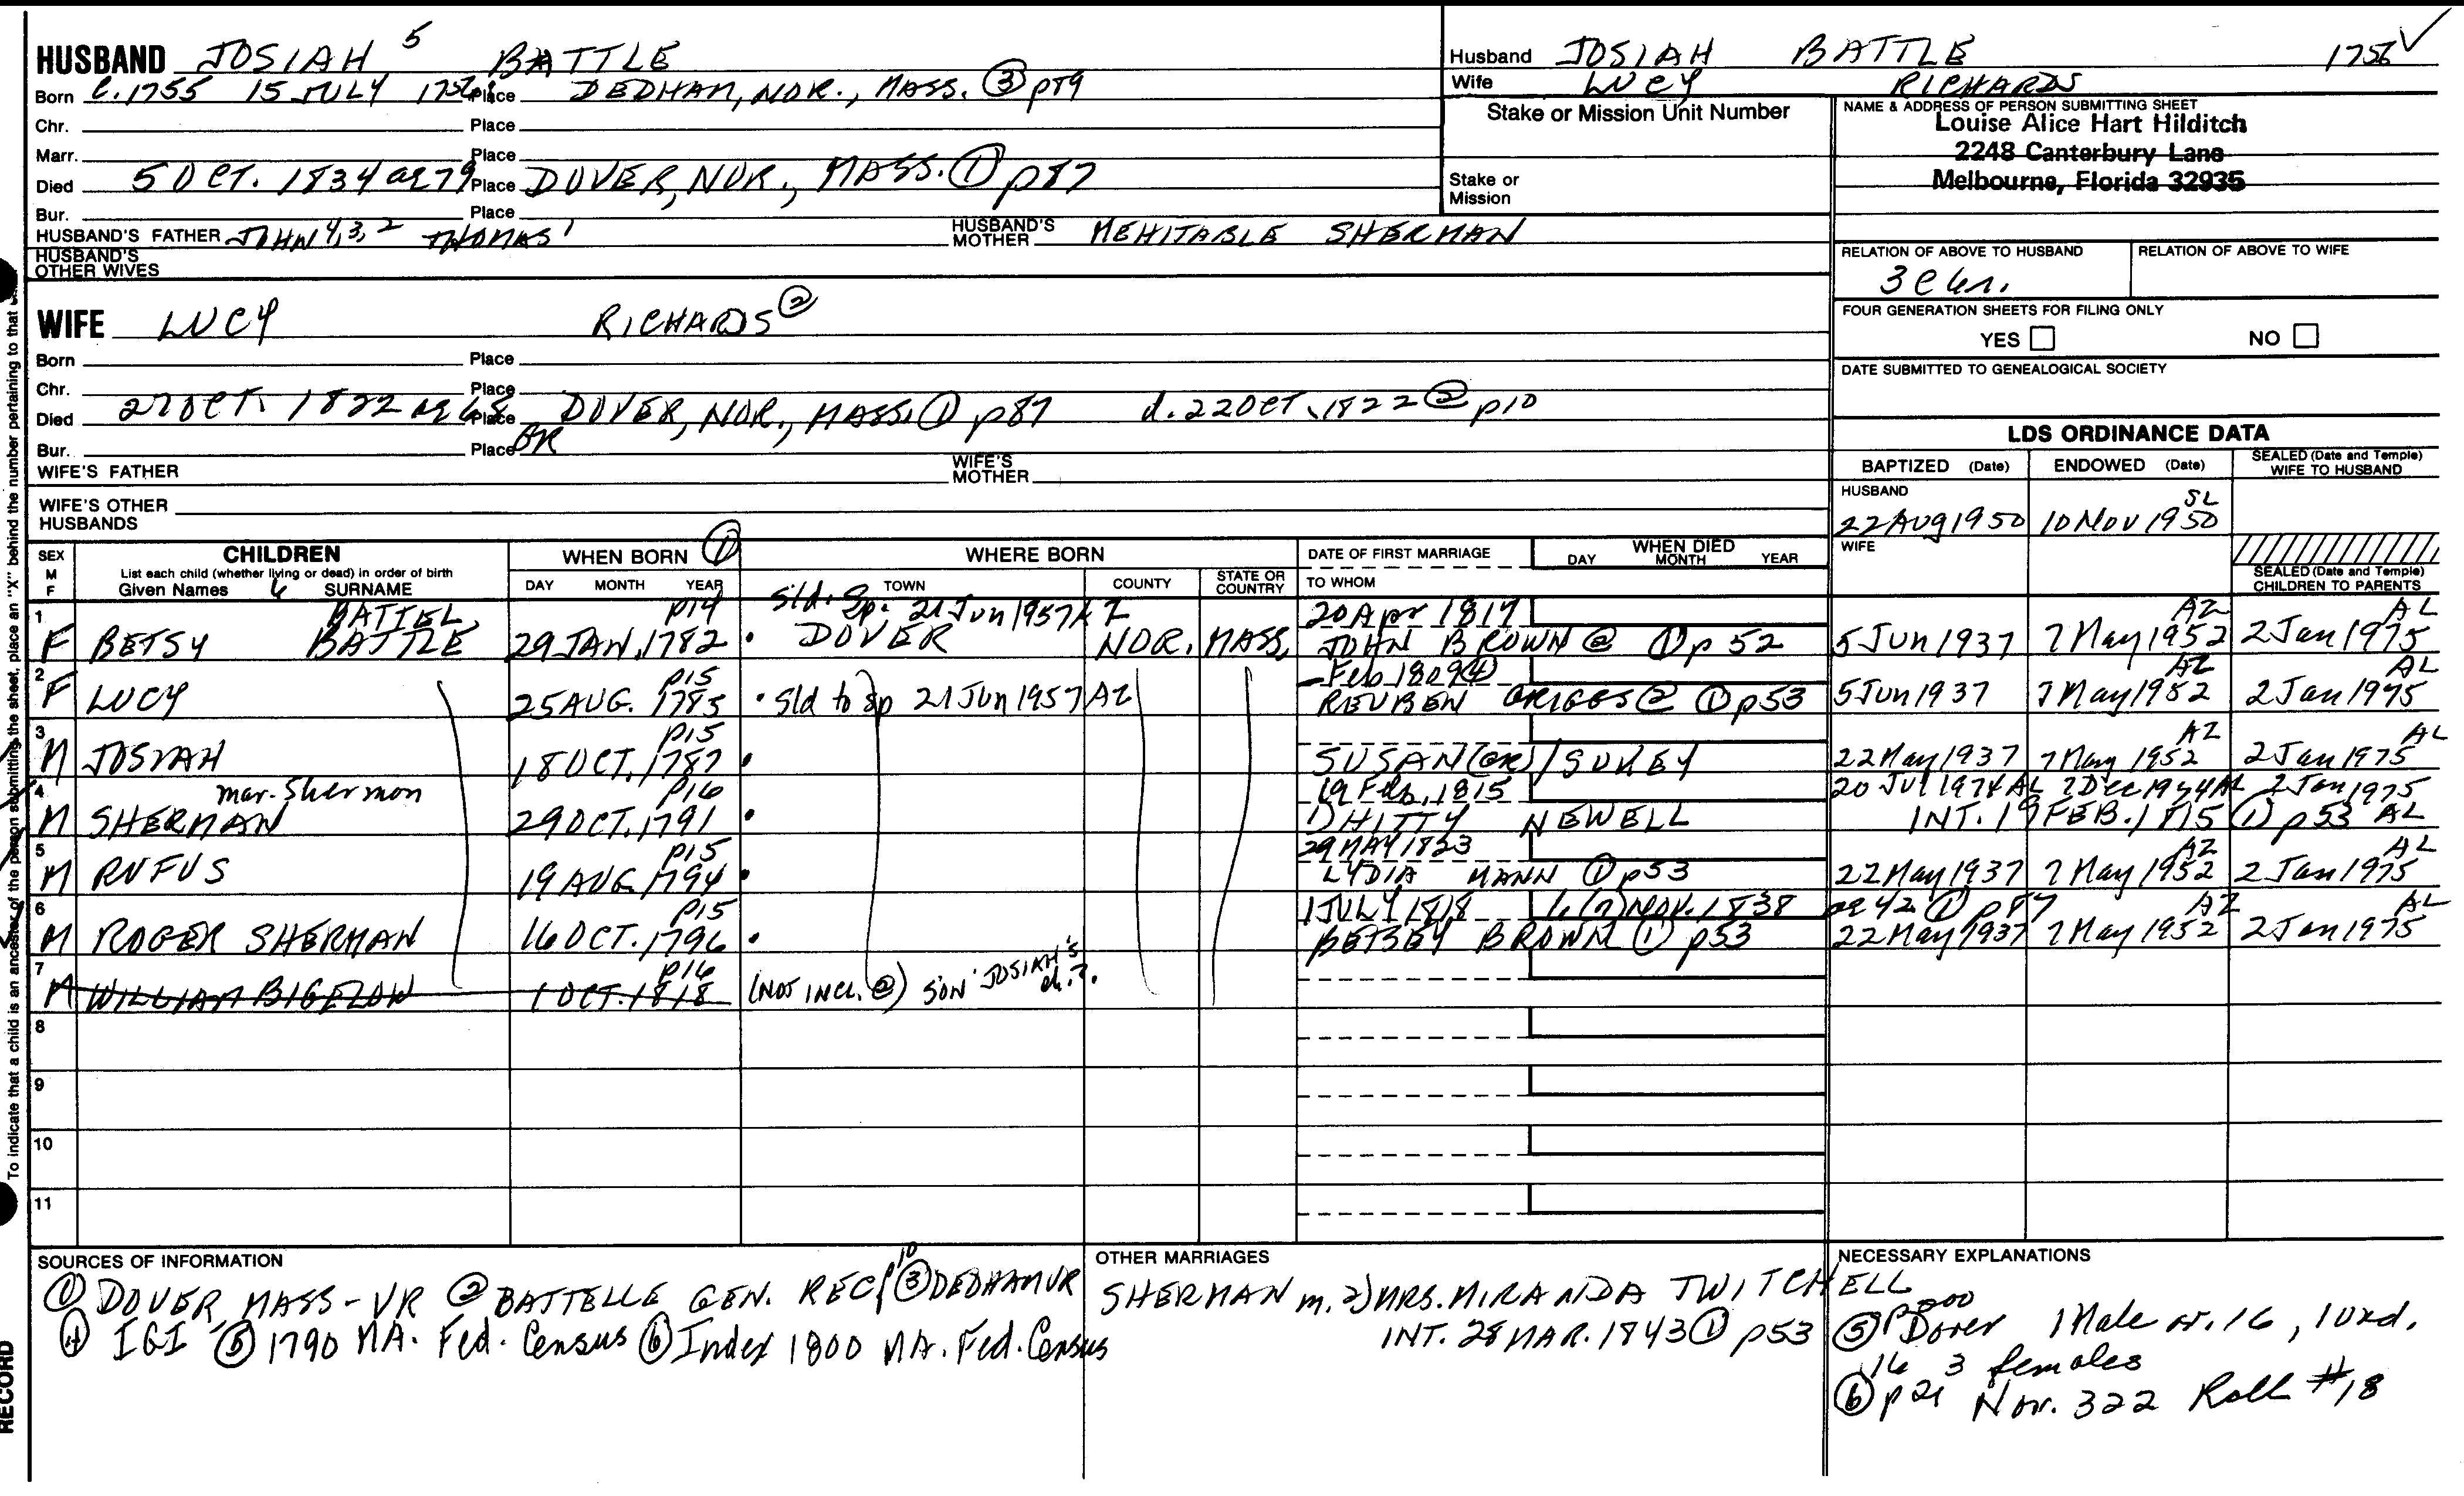 HUSBAND JOSIAH 5 BATTLE
Born C. 1755 15 JULY 1756 Place DEDHAM, NOR., MASS. ③ p79
Chr. Place
Marr. Place
Died 5 OCT. 1834 ae 79 Place DOVER, NOR., MASS. ① p87
Bur. Place
HUSBAND'S FATHER JOHN 4,3,2 THOMAS 1 HUSBAND'S MOTHER MEHITABLE SHERMAN
HUSBAND'S OTHER WIVES
WIFE LUCY RICHARDS ②
Born Place
Chr. Place
Died 27 OCT. 1822 ae 68 Place DOVER, NOR., MASS. ① p87 d. 22 OCT. 1822 ② p10
Bur. Place OR
WIFE'S FATHER WIFE'S MOTHER
WIFE'S OTHER HUSBANDS
Husband JOSIAH BATTLE 1756 ✓
Wife LUCY RICHARDS
Stake or Mission Unit Number
Stake or Mission
NAME & ADDRESS OF PERSON SUBMITTING SHEET
Louise Alice Hart Hilditch
2248 Canterbury Lane
Melbourne, Florida 32935
RELATION OF ABOVE TO HUSBAND RELATION OF ABOVE TO WIFE
FOUR GENERATION SHEETS FOR FILING ONLY
YES NO
DATE SUBMITTED TO GENEALOGICAL SOCIETY
LDS ORDINANCE DATA
BAPTIZED (Date) ENDOWED (Date) SEALED (Date and Temple) WIFE TO HUSBAND
HUSBAND
SL
22 Aug 1950 10 Nov 1950
WIFE
SEALED (Date and Temple) CHILDREN TO PARENTS
SEX M F CHILDREN WHEN BORN ① WHERE BORN DATE OF FIRST MARRIAGE WHEN DIED
List each child (whether living or dead) in order of birth
Given Names 6 SURNAME DAY MONTH YEAR TOWN COUNTY STATE OR COUNTRY TO WHOM DAY MONTH YEAR
1 BATTEL, p14 Sld. Sp. 21 Jun 1957 AZ 20 Apr 1817 AZ AL
F BETSY BATTLE 29 JAN. 1782 • DOVER NOR. MASS, JOHN BROWN @ ① p 52 5 Jun 1937 7 May 1952 2 Jan 1975
2 p15 - Feb 1809 ④ AZ AL
F LUCY 25 AUG. 1785 • Sld to Sp 21 Jun 1957 AZ REUBEN GRIGGS @ ① p53 5 Jun 1937 7 May 1952 2 Jan 1975
3 p15 AZ AL
M JOSIAH 18 OCT. 1787 • SUSAN (OR) / SUKEY 22 May 1937 7 May 1952 2 Jan 1975
4 mar. Shermon p16 19 Feb. 1815 20 Jul 1974 AL 7 Dec 1974 AL 2 Jan 1975
M SHERMAN 29 OCT. 1791 • 1) HITTY NEWELL INT. 19 FEB. 1815 ① p53 AL
5 p15 29 MAY 1823 AZ AL
M RUFUS 19 AUG. 1794 • LYDIA MANN ① p53 22 May 1937 7 May 1952 2 Jan 1975
6 p15 1 JULY 1818 6 (7) NOV. 1838 ae 42 ① p87 AZ AL
M ROGER SHERMAN 16 OCT. 1796 • BETSEY BROWN ① p53 22 May 1937 7 May 1952 2 Jan 1975
7 p16
M WILLIAM BIGELOW 1 OCT. 1818 (NOT INCL. @) SON JOSIAH'S ch.?
8
9
10
11
SOURCES OF INFORMATION
① DOVER, MASS - VR ② BATTELLE GEN. REC p 10 ③ DEDHAM VR
④ IGI ⑤ 1790 MA. Fed. Census ⑥ Index 1800 MA. Fed. Census
OTHER MARRIAGES
SHERMAN m. 2) MRS. MIRANDA TWITCHELL
INT. 28 MAR. 1843 ① p53
NECESSARY EXPLANATIONS
⑤ Dover 1 Male ov. 16, 1 und.
16 3 females
⑥ p 21 Nor. 322 Roll #18
To indicate that a child is an ancestor of the person submitting the sheet, place an "X" behind the number pertaining to that
RECORD